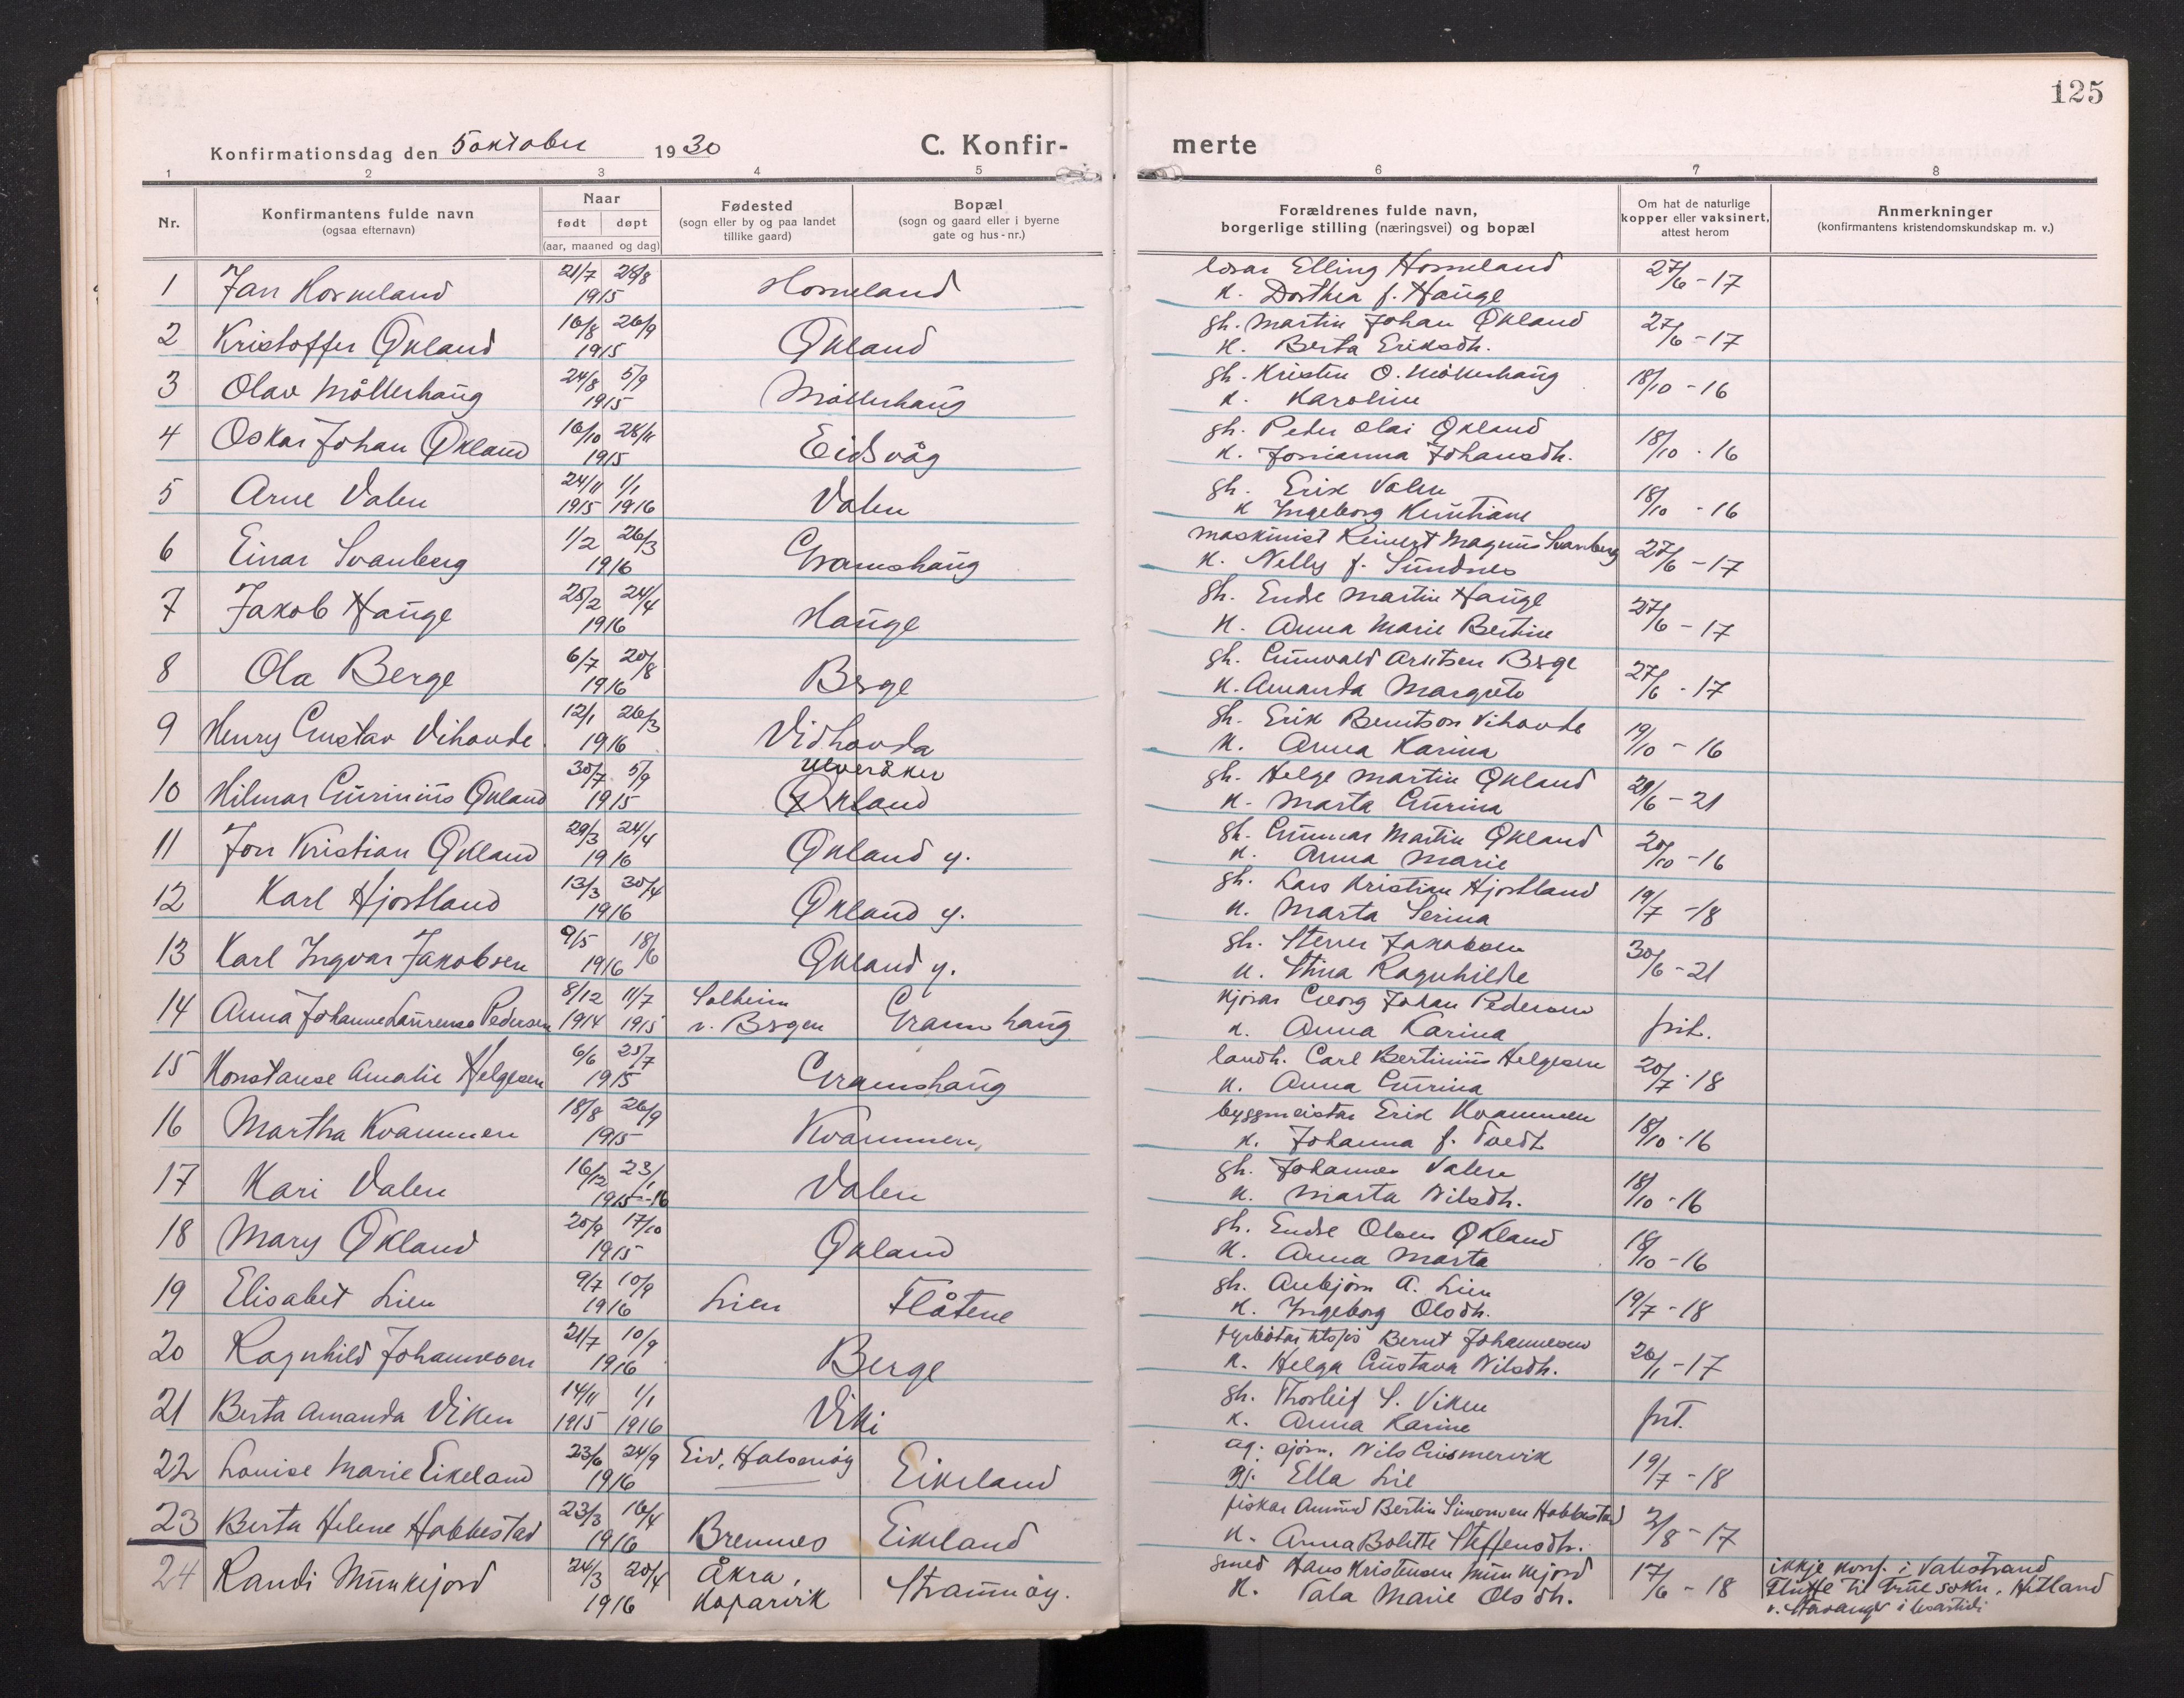 125
Konfirmationsdag den 5 oktober 1930
C. Konfir-
merte
1 2 3 4 5 6 7 8
Nr.
Konfirmantens fulde navn
(ogsaa efternavn)
Naar
født døpt
(aar, maaned og dag)
Fødested
(sogn eller by og paa landet
tillike gaard)
Bopæl
(sogn og gaard eller i byerne
gate og hus-nr.)
Forældrenes fulde navn,
borgerlige stilling (næringsvei) og bopæl
Om hat de naturlige
kopper eller vaksinert,
attest herom
Anmerkninger
(konfirmantens kristendomskundskap m. v.)
1 Jan Horneland 21/7 28/8 1915 Horneland
lærar Elling Horneland 27/6-17
k. Dorthea f. Hauge
2 Kristoffer Økland 16/8 26/9 1915 Økland
gh. Martin Johan Økland 27/6-17
k. Berta Eriksdh.
3 Olav Møllerhaug 24/8 5/9 1915 Møllerhaug
gh. Kristen O. Møllerhaug 18/10-16
k. Karoline
4 Oskar Johan Økland 16/10 28/11 1915 Eidsvåg
gh. Peder Olai Økland 18/10-16
k. Jonianna Johansdh.
5 Arne Valen 24/11 1915 1/1 1916 Valen
gh. Erik Valen 18/10-16
k Ingeborg Kristiane
6 Einar Svanberg 1/2 26/3 1916 Gramshaug
maskinist Reinert Magnus Svanberg 27/6-17
k. Nelly f. Sundnes
7 Jakob Hauge 25/2 24/4 1916 Hauge
gh. Endre Martin Hauge 27/6-17
k. Anna Marie Bertine
8 Ola Berge 6/7 20/8 1916 Berge
gh. Gunvald Arntsen Berge 27/6-17
k. Amanda Margrete
9 Henry Gustav Vihovde 12/1 26/3 1916 Vidhovda
gh. Erik Berntson Vihovde 19/10-16
k. Anna Karina
10 Hilmar Gurinius Økland 30/7 5/9 1915 Ulveråker Økland
gh. Helge Martin Økland 29/6-21
k. Marta Gurina
11 Jon Kristian Økland 29/3 24/4 1916 Økland y.
gh. Gunnar Martin Økland 20/10-16
k. Anna Marie
12 Karl Hjortland 13/3 30/4 1916 Økland y.
gh. Lars Kristian Hjortland 19/7-18
k. Marta Serina
13 Karl Ingvar Jakobsen 9/5 18/6 1916 Økland y.
gh. Sterner Jakobsen 30/6-21
k. Stina Ragnhilde
14 Anna Johanne Laurense Pedersen 8/12 1914 11/7 1915 Solheim v. Bergen Gramshaug
kjørar Georg Johan Pedersen frit.
k. Anna Karina
15 Konstanse Amalie Helgesen 6/6 25/7 1915 Gramshaug
landh. Carl Bertinius Helgesen 20/7-18
k. Anna Gurina
16 Martha Kvammen 18/8 26/9 1915 Kvammen
byggmeistar Erik Kvammen 18/10-16
k. Johanna f. Tvedt
17 Kari Valen 16/12 23/1 1915-16 Valen
gh. Johannes Valen 18/10-16
k. Marta Nilsdh.
18 Mary Økland 20/9 17/10 1915 Økland
gh. Endre Olsen Økland 18/10-16
k. Anna Marta
19 Elisabet Lien 9/7 10/9 1916 Lien Flåtene
gh. Anbjørn A. Lien 19/7-18
k. Ingeborg Olsdh.
20 Ragnhild Johannesen 21/7 10/9 1916 Berge
fyrbøtar Bernt Johannesen 26/1-17
k. Helga Gustava Nilsdh.
21 Berta Amanda Viken 14/11 1915 1/1 1916 Viki
gh. Thorleif S. Viken frit.
k. Anna Karine
22 Louise Marie Eikeland 23/6 24/9 1916 Eid, Halsenøy Eikeland
ug. sjøm. Nils Gismervik 19/7-18
pj. Ella Lie
23 Berta Helene Habbestad 23/3 16/4 1916 Bremnes Eikeland
fiskar Amund Bertin Simonsen Habbestad 2/8-17
k. Anna Bolette Steffensdh.
24 Randi Munkejord 24/3 20/4 1916 Åkra, Kopervik Straumøy.
smed Hans Kristensen Munkejord 17/6-18
k. Tala Marie Olsdh.
ikkje konf. i Valestrand
Flutte til sokn, Hetland
v. Stavanger i lesartidi